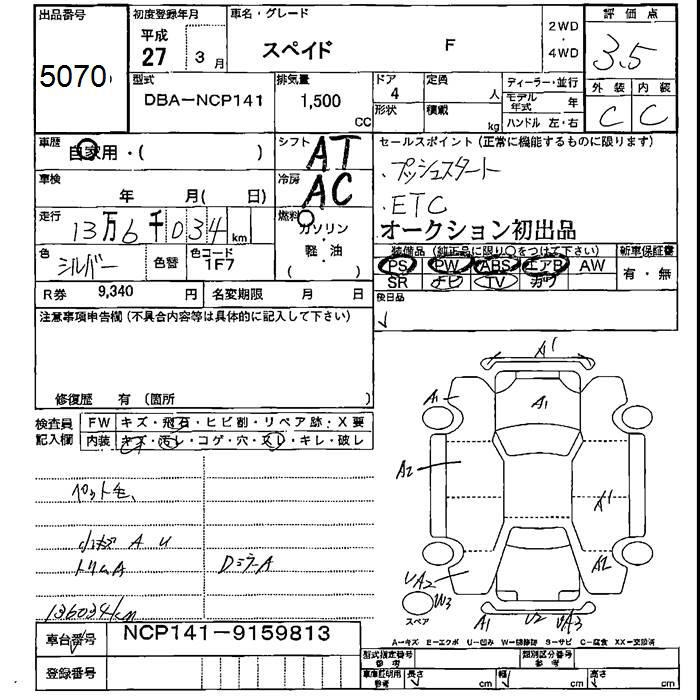 出品番号
5070
初度登録年月
平成
27 3 月
車名・グレード
スペイド F
2WD
・
4WD
評価点
3.5
外装 内装
C C
型式
DBA-NCP141
排気量
1,500
CC
ドア
4
形状
定員
人
積載
kg
ディーラー・並行
モデル年式 年
ハンドル 左・右
車歴
自家用・( )
シフト
AT
車検
年 月( 日)
冷房
AC
走行
13万6千034 km
燃料
ガソリン
・
軽油
( )
色
シルバー
色替
色コード
1F7
R券 9,340 円
名変期限 月 日
セールスポイント(正常に機能するものに限ります)
・プッシュスタート
・ETC
オークション初出品
装備品(純正品に限り○をつけて下さい)
PS PW ABS エアB AW
SR ナビ TV カワ
新車保証書
有・無
後日品
注意事項申告欄(不具合内容等は具体的に記入して下さい)
修復歴 有(箇所 )
検査員
記入欄
FW キズ・飛石・ヒビ割・リペア跡・X要
内装 キズ・汚レ・コゲ・穴・スレ・キレ・破レ
ペット毛、
小キズ A U
トリムA DミラーA
136034km
車台番号
NCP141-9159813
登録番号
A1
A1
A1
A2
A1
UA2
A2
W3
スペア
A1
U2
UA3
A-キズ E-エクボ U-凹み W-補修跡 S-サビ C-腐食 XX-交換済
型式指定番号
参考
類別区分番号
参考
車庫証明用
参考
長さ cm
幅 cm
高さ cm